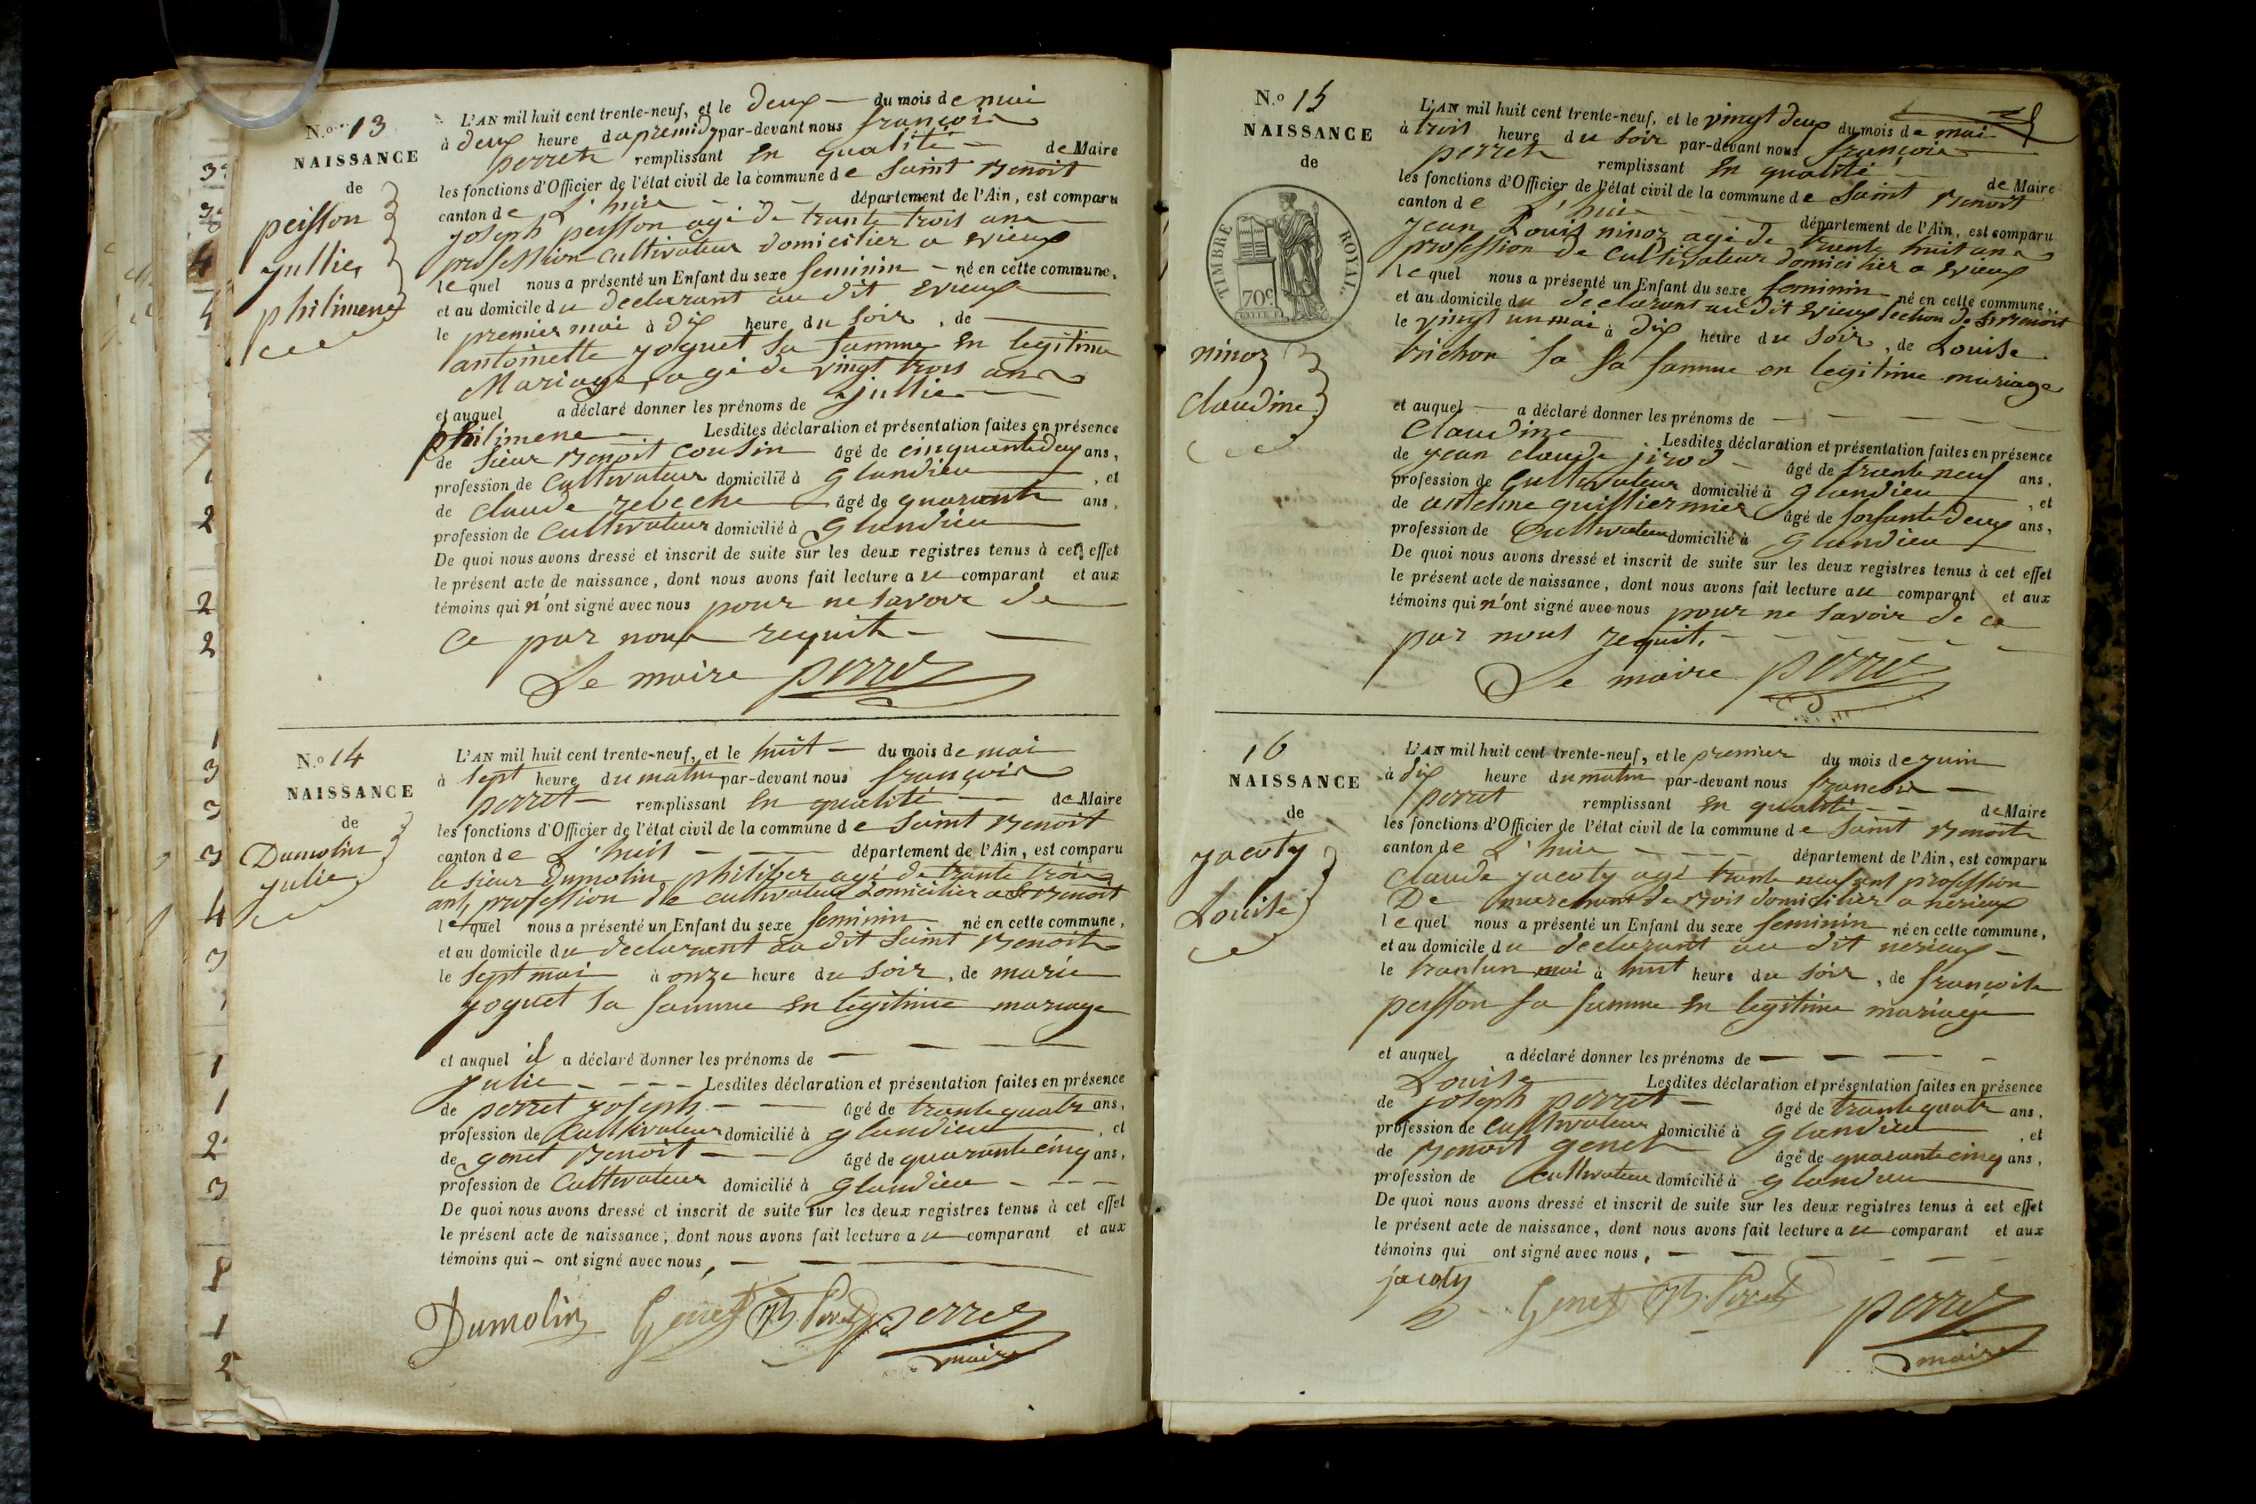 N.o 13
NAISSANCE
de
peisson
jullie
philimene
L'AN mil huit cent trente-neuf, et le deux du mois de mai
à deux heure dapremidy par-devant nous françois
perret remplissant en qualité de Maire
les fonctions d'Officier de l'état civil de la commune de saint Benoit
canton de L'huis département de l'Ain, est comparu
joseph peisson agé de trante trois ans
profession cultivateur domicilier a evieux
lequel nous a présenté un Enfant du sexe feminin né en cette commune,
et au domicile du declarant au dit evieux
le premier mai à dix heure du soir, de
antoinette joguet sa famme en legitime
Mariage agé de vingt trois ans
et auquel a déclaré donner les prénoms de jullie
philimene Lesdites déclaration et présentation faites en présence
de sieur Benoit cousin âgé de cinquante deux ans,
profession de cultivateur domicilié à glandieu, et
de claude rebeche âgé de quarante ans,
profession de cultivateur domicilié à glandieu
De quoi nous avons dressé et inscrit de suite sur les deux registres tenus à cet effet
le présent acte de naissance, dont nous avons fait lecture au comparant et aux
témoins qui n'ont signé avec nous pour ne savoir de
ce par nous requit
Le maire perret
N.o 14
NAISSANCE
de
Dumolin
julie
L'AN mil huit cent trente-neuf, et le huit du mois de mai
à sept heure du matin par-devant nous françois
perret remplissant en qualité de Maire
les fonctions d'Officier de l'état civil de la commune de saint Benoit
canton de L'huis département de l'Ain, est comparu
le sieur Dumolin philiber agé de trante trois
ans, profession de cultivateur domicilier a St Benoit
lequel nous a présenté un Enfant du sexe feminin né en cette commune,
et au domicile du declarant au dit saint Benoit
le sept mai à onze heure du soir, de marie
joguet sa famme en legitime mariage
et auquel il a déclaré donner les prénoms de
julie Lesdites déclaration et présentation faites en présence
de perret joseph âgé de trante quatr ans,
profession de Cultivateur domicilié à glandieu, et
de genet Benoit âgé de quarante cinq ans,
profession de Cultivateur domicilié à glandieu
De quoi nous avons dressé et inscrit de suite sur les deux registres tenus à cet effet
le présent acte de naissance, dont nous avons fait lecture au comparant et aux
témoins qui ont signé avec nous,
Dumolin Genet Jh. Perret perret
maire
N.o 15
NAISSANCE
de
TIMBRE ROYAL
70c
ninoz
claudine
L'AN mil huit cent trente-neuf, et le vingt deux du mois de mai
à trois heure du soir par-devant nous françois
perret remplissant en qualité de Maire
les fonctions d'Officier de l'état civil de la commune de saint Benoit
canton de L'huis département de l'Ain, est comparu
jean Louis ninoz agé de trante huit ans
profession de cultivateur domicilier a evieux
lequel nous a présenté un Enfant du sexe feminin né en cette commune,
et au domicile du declarant au dit evieux section de St Benoit
le vingt un mai à dix heure du soir, de Louise
trichon sa sa famme en legitime mariage
et auquel a déclaré donner les prénoms de
Claudine Lesdites déclaration et présentation faites en présence
de jean claude jirod âgé de trante neuf ans,
profession de cultivateur domicilié à glandieu, et
de antelme quistiermier âgé de soisante deux ans,
profession de Cultivateur domicilié à glandieu
De quoi nous avons dressé et inscrit de suite sur les deux registres tenus à cet effet
le présent acte de naissance, dont nous avons fait lecture au comparant et aux
témoins qui n'ont signé avec nous pour ne savoir de ce
par nous requit.
Le maire perret
16
NAISSANCE
de
jacoty
Louise
L'AN mil huit cent trente-neuf, et le premier du mois de juin
à dix heure du matin par-devant nous francois
perret remplissant en qualité de Maire
les fonctions d'Officier de l'état civil de la commune de saint Benoit
canton de L'huis département de l'Ain, est comparu
claude jacoty agé trante neuf ans profession
De marechant de Bois domicilier a nerieux
lequel nous a présenté un Enfant du sexe feminin né en cette commune,
et au domicile du declarant au dit nerieux
le trantun mai à huit heure du soir, de françoise
peisson sa famme en legitime mariage
et auquel a déclaré donner les prénoms de
Louise Lesdites déclaration et présentation faites en présence
de joseph perret âgé de trante quatr ans,
profession de cultivateur domicilié à glandieu, et
de Benoit genet âgé de quarante cinq ans,
profession de Cultivateur domicilié à glandieu
De quoi nous avons dressé et inscrit de suite sur les deux registres tenus à cet effet
le présent acte de naissance, dont nous avons fait lecture au comparant et aux
témoins qui ont signé avec nous,
jacoty Genet Jh. Perret perret
maire